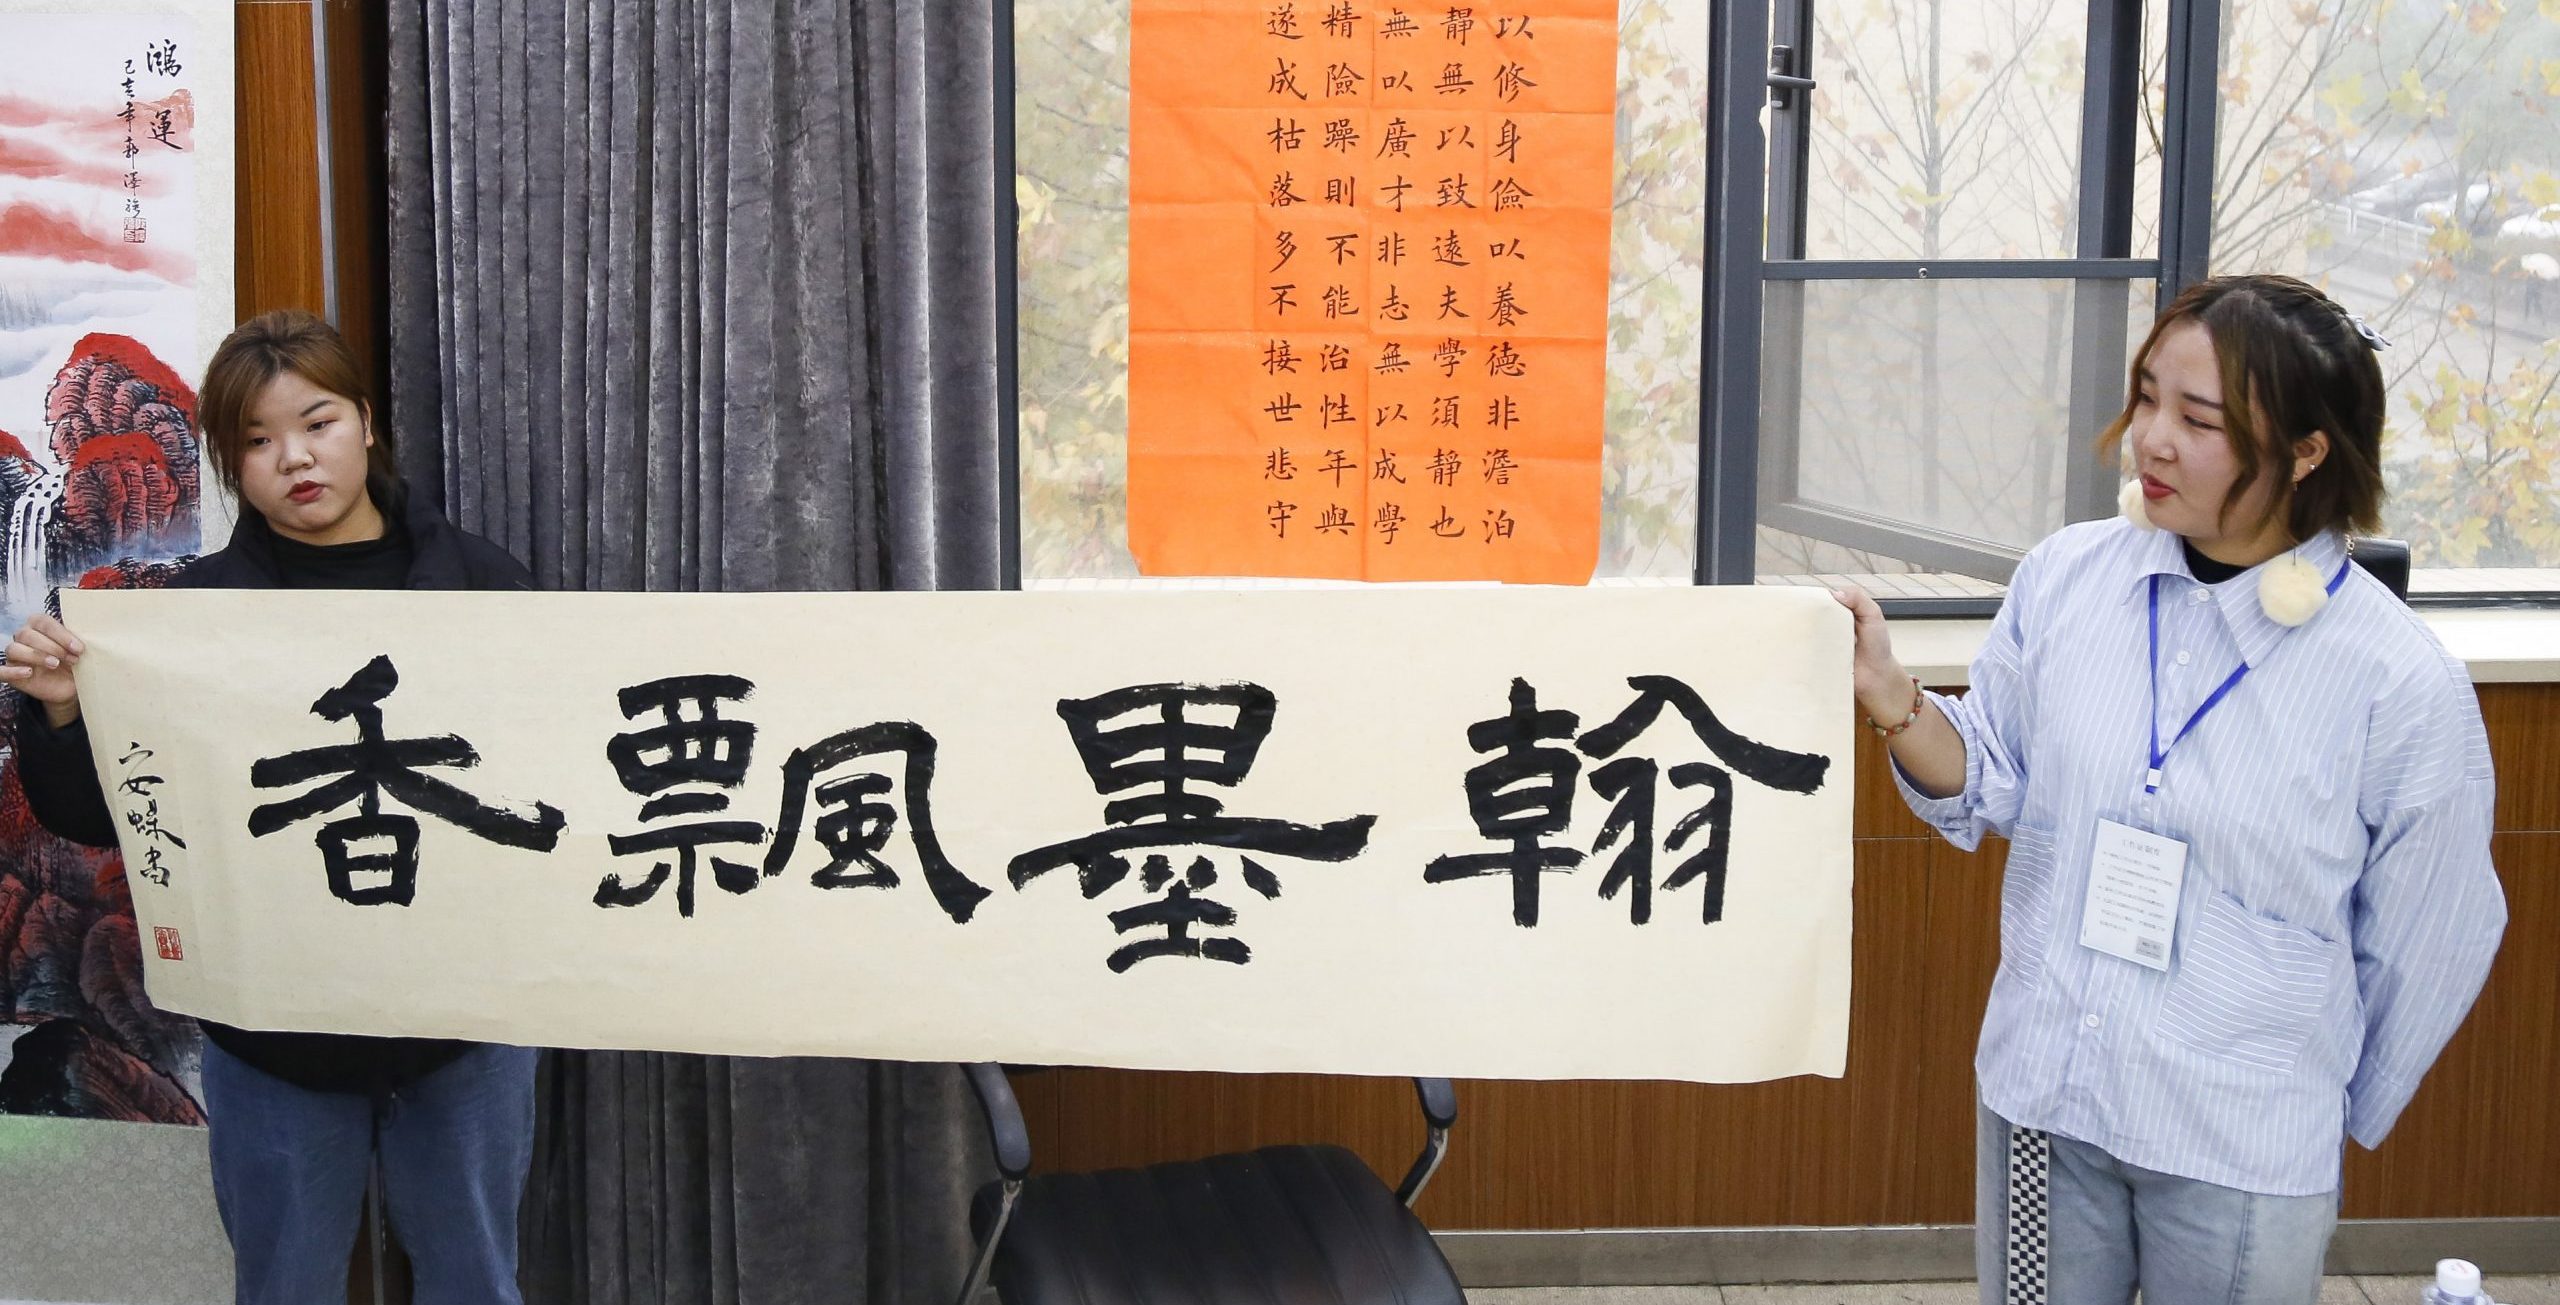 翰墨飄香
安蝶書
以修身儉以養德非澹泊
靜無以致遠夫學須靜也
無以廣才非志無以成學
精險躁則不能治性年與
遂成枯落多不接世悲守
鴻運
己亥年郭澤